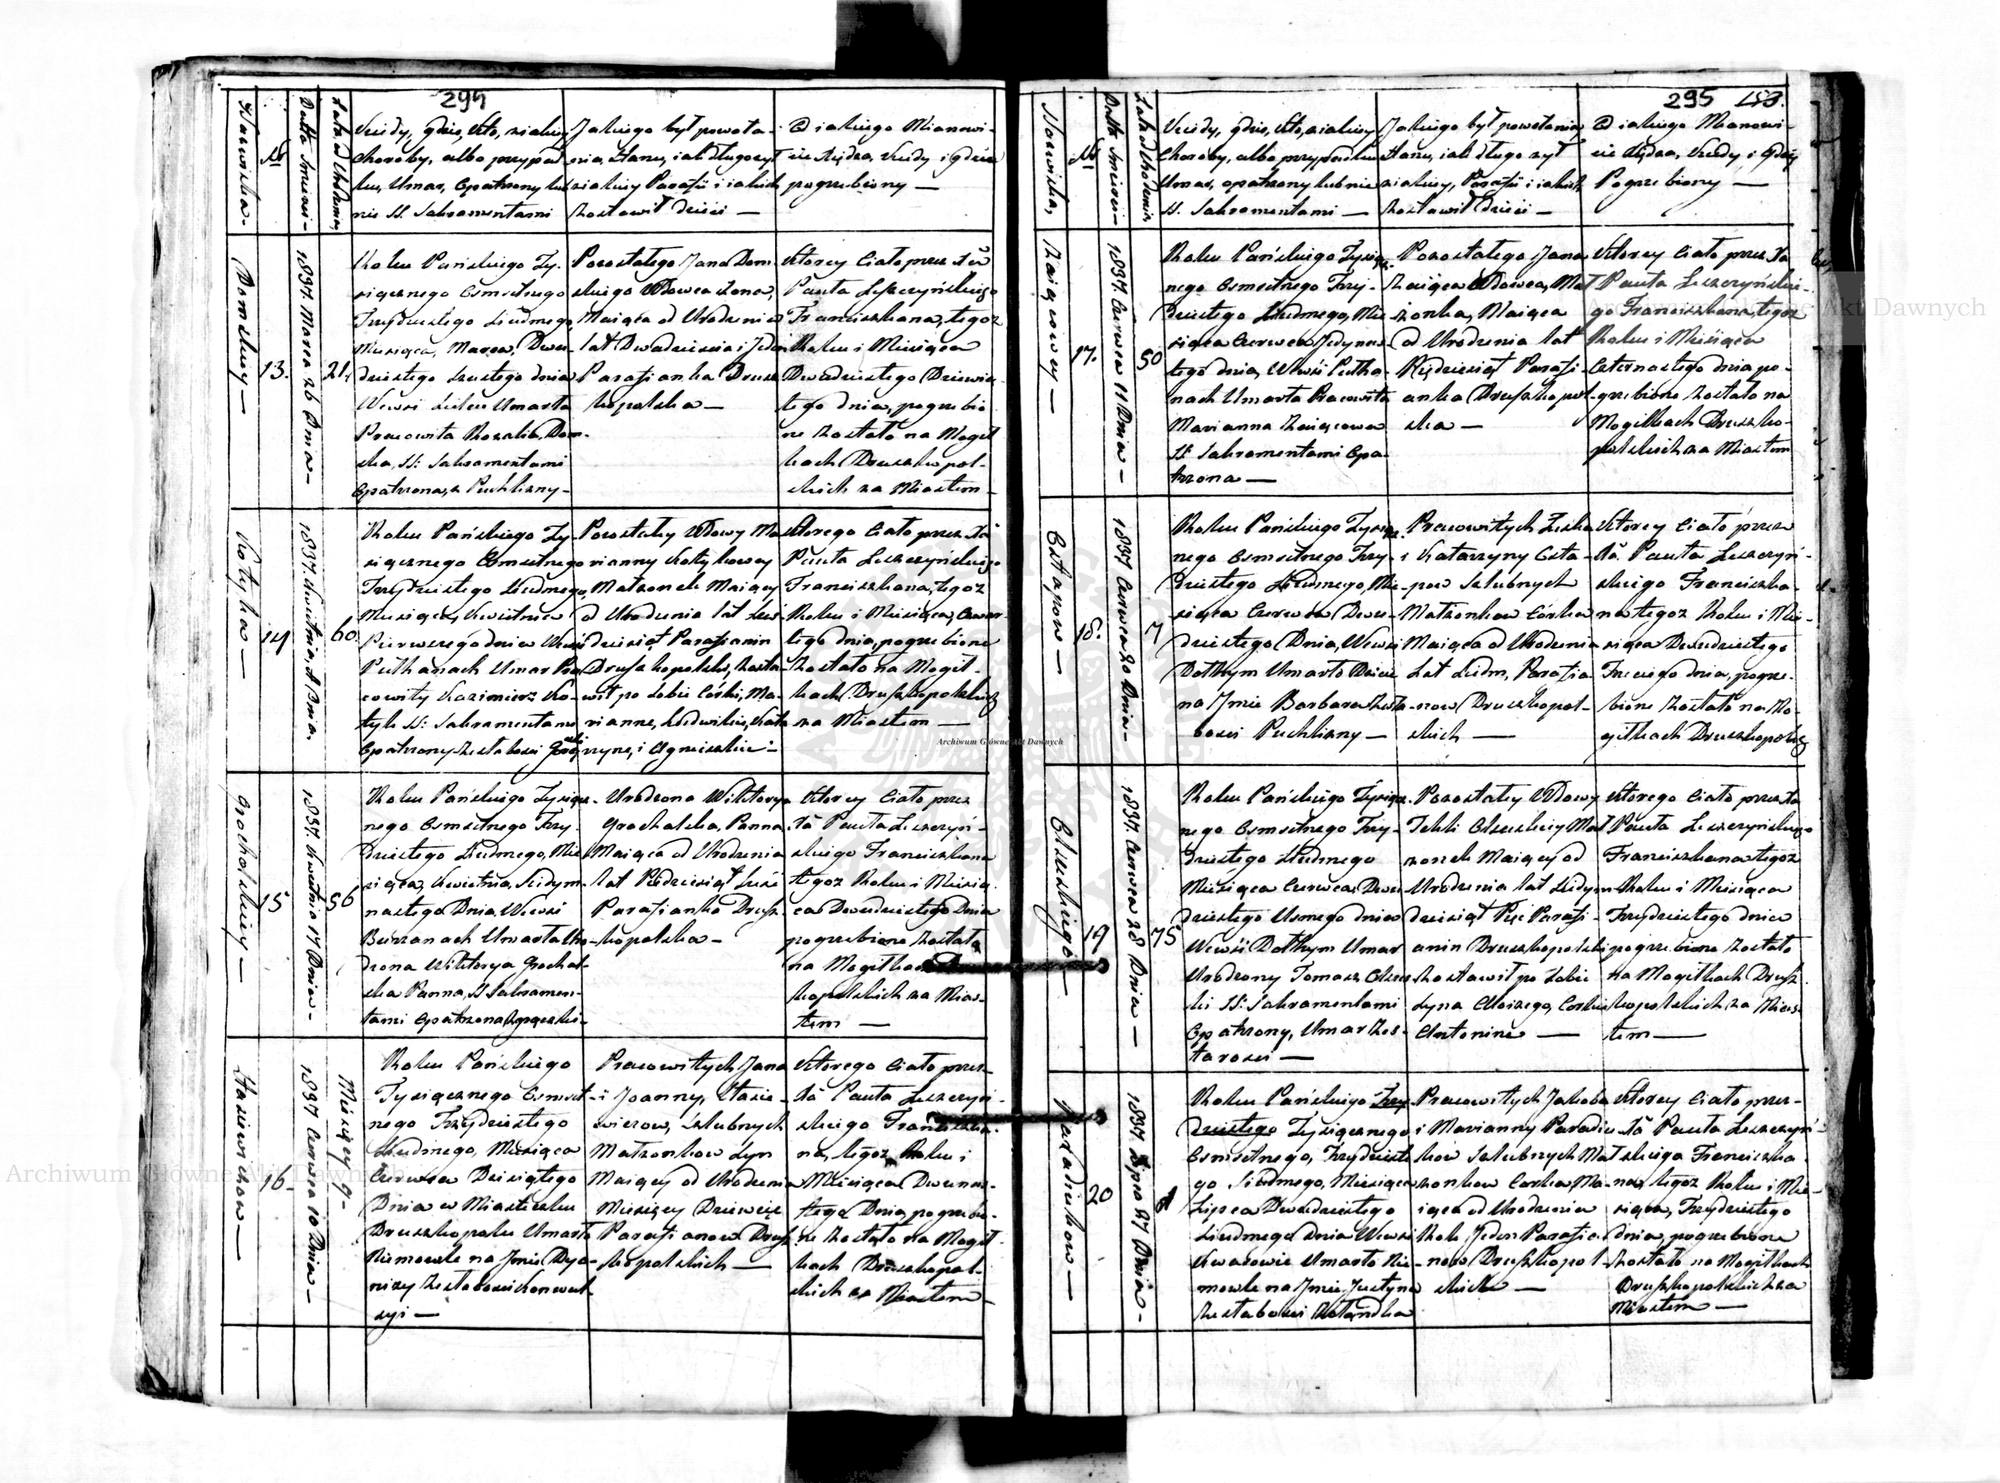 294
Nazwiska
N
Datta Śmierci
Lata od Urodzenia
Kiedy, gdzie, kto, z jakiey
Choroby, albo przypad
ku, Umar, Opatrzony lub
nie SS. Sakramentami
Jakiego był powoła-
nia, Stanu, jak długo żył
z jakiey Parafii i jakich
zostawił dzieci —
a jakiego Mianowi-
cie Xiędza, kiedy i gdzie
pogrzebiony —
Domskiey —
13.
1837. Marca 26 Dnia —
21.
Roku Pańskiego Ty-
siącznego Osmsetnego
Trzydziestego Siudmego
Miesiąca, Marca, Dwu-
dziestego szustego dnia
Wewsi Umarła
Pracowita Rozalia Dom-
ska, SS. Sakramentami
Opatrzona, z Puchliny —
Pozostałego Jana Dom
skiego Wdowca żona,
Maiąca od Urodzenia
lat Dwadzieścia i Jeden
Parafianka Drusz
kopolska —
Ktorey Ciało przez JX
Pawła Leszczyńskiego
Franciszkana, tegoż
Roku i Miesiąca
Dwudziestego Dziewią
tego dnia, pogrzebio
ne zostało na Mogił
kach Druszkopol-
skich za Miastem —
Kotyka —
14
1837. Kwietnia, 1 Dnia.
60
Roku Pańskiego Ty-
siącznego Osmsetnego
Trzydziestego Siudmego,
Miesiąca, Kwietnia
Pierwszego dnia Wewsi
Pułhanach Umar Pra
cowity Kazimierz Ko-
tyka SS. Sakramentami
Opatrzony
Pozostały Wdowy Ma
rianny Kotykowey
Matzonek Maiący
od Urodzenia lat sześ
dziesiąt Parafianin
Druszkopolski, Zosta-
wił po sobie Córki, Ma-
riannę, Ludwikę, Kata
rzynę, i Agnieszkę —
Ktorego Ciało przez JX
Pawła Leszczyńskiego
Franciszkana, tegoż
Roku i Miesiąca, Czwar
tego dnia, pogrzebione
zostało na Mogił-
kach Druszkopolskich
za Miastem —
Grocholskiey —
15
1837. Kwietnia 17 Dnia —
56
Roku Pańskiego Tysiącz-
nego Osmsetnego Trzy-
dziestego Siudmego, Mie
siąca, Kwietnia, Siedym
nastego Dnia Wewsi
Burzanach Umarła Uro
dzona Wiktorya Grochol-
ska Panna, SS Sakramen-
tami Opatrzona,
Urodzona Wiktorya
Grocholska, Panna
Maiąca od Urodzenia
lat Pięćdziesiąt sześć
Parafianka Drusz-
kopolska —
Ktorey Ciało przez
JX Pawła Leszczyń-
skiego Franciszkana
tegoż Roku i Miesią
ca Dwudziestego Dnia
pogrzebione zostało
na Mogiłkach
kopolskich za Mias-
tem —
Stasiewiczow —
16.
1837 Czerwca 10 Dnia —
Miesięcy 9 —
Roku Pańskiego
Tysiącznego Osmset-
nego Trzydziestego
Siudmego, Miesiąca
Czerwca Dziesiątego
Dnia w Miasteczku
Druszkopolu Umarło
Niemowle na Jmie Dyo-
nizy Konwul-
syi —
Pracowitych Jana
i Joanny, Stasie-
wiczow, Szlubnych
Matzonkow Syn
Maiący od Urodzenia
Miesięcy Dziewięć
Parafianow Drusz
kopolskich —
Ktorego Ciało przez
JX Pawła Leszczyń-
skiego Franciszka-
na, tegoż Roku i
Miesiąca Dwunas-
tego Dnia pogrzebio-
ne zostało na Mogił
kach Druszkopol-
skich za Miastem —
295
153.
Nazwiska,
N
Datta Śmierci —
Lata od Urodzenia
Kiedy, gdzie, kto, z jakiey
Choroby, albo przypadku
Umar, opatrzony lub nie
SS. Sakramentami —
Jakiego był powołania
Stanu, jak długo żył
z jakiey, Parafii i jakich
zostawił dzieci —
a jakiego Mianowi-
cie Xiędza, kiedy i gdzie
Pogrzebiony —
Zaięcowey —
17.
1837. Czerwca 11 Dnia —
50
Roku Pańskiego Tysiącz-
nego Osmsetnego Trzy-
dziestego Siudmego, Mie
siąca Czerwca Jedynas-
tego dnia, Wewsi Pułha-
nach Umarła Pracowita
Marianna Zaięcowa
SS. Sakramentami Opa
trzona —
Pozostałego Jana
Zaiąca Wdowca, Mał
żonka, Maiąca
od Urodzenia lat
Pięćdziesiąt Parafi-
anka Druszkopol-
ska —
Ktorey Ciało przez JX
Pawła Leszczyńskie-
go Franciszkana, tegoż
Roku i Miesiąca
Czternastego dnia po-
grzebione zostało na
Mogiłkach Druszko-
polskich za Miastem
Ostapow —
18.
1837 Czerwca 20 Dnia —
7
Roku Pańskiego Tysiącz-
nego Osmsetnego Trzy-
dziestego Siudmego, Mie-
siąca Czerwca Dwu-
dziestego Dnia, Wewsi
Dołhym Umarło Dziecie
na Jmie Barbara zsła-
bości Puchliny —
Pracowitych
i Katarzyny Osta-
pow Szlubnych
Matzonkow Córka
Maiąca od Urodzenia
Lat Siedm, Parafia-
now Druszkopol-
skich —
Ktorey Ciało przez
JX Pawła Leszczyń-
skiego Franciszka-
na tegoż Roku i Mie-
siąca Dwudziestego
Trzeciego dnia, pogrze-
bione zostało na Mo-
giłkach Druszkopolsk
Olszeskiego —
19
1837. Czerwca 28 Dnia —
75
Roku Pańskiego Tysiącz-
nego Osmsetnego Trzy-
dziestego Siudmego
Miesiąca Czerwca, Dwu
dziestego Usmego dnia
Wewsi Dołhym Umar
Urodzony Tomasz Olszes
ki SS. Sakramentami
Opatrzony, Umar zes-
tarości —
Pozostały Wdowy
Tekli Olszeskiey Mał
zonek Maiący od
Urodzenia lat Siedym
dziesiąt Pięć Parafi-
anin Druszkopolski
zostawił po sobie
Syna Aloizego, Corkę
Antoninę —
Ktorego Ciało przez JX
Pawła Leszczyńskiego
Franciszkana tegoż
Roku i Miesiąca
Trzydziestego dnia
pogrzebione zostało
na Mogiłkach Drusz-
kopolskich, za Mias-
tem —
Paradiukow —
20
1837. Lipca 27 Dnia —
1
Roku Pańskiego Trzy
dziestego Tysiącznego
Osmsetnego, Trzydzieste
go Siudmego, Miesiąca
Lipca Dwudziestego
Siudmego Dnia Wewsi
Kwasowie Umarło Nie-
mowle na Jmie Justyna
Pracowitych Jakoba
i Marianny Paradiu
kow Szlubnych Mał
zonkow Corka Ma-
iąca od Urodzenia
Rok Jeden Parafia-
now Druszkopol-
skich —
Ktorey Ciało przez-
JX Pawła Leszczyń-
skiego Franciszka-
na tegoż Roku i Mie-
siąca, Trzydziestego
dnia, pogrzebione
zostało na Mogiłkach
Druszkopolskich za
Miastem —
Archiwum Główne Akt Dawnych
Archiwum Główne Akt Dawnych
Archiwum Główne Akt Dawnych